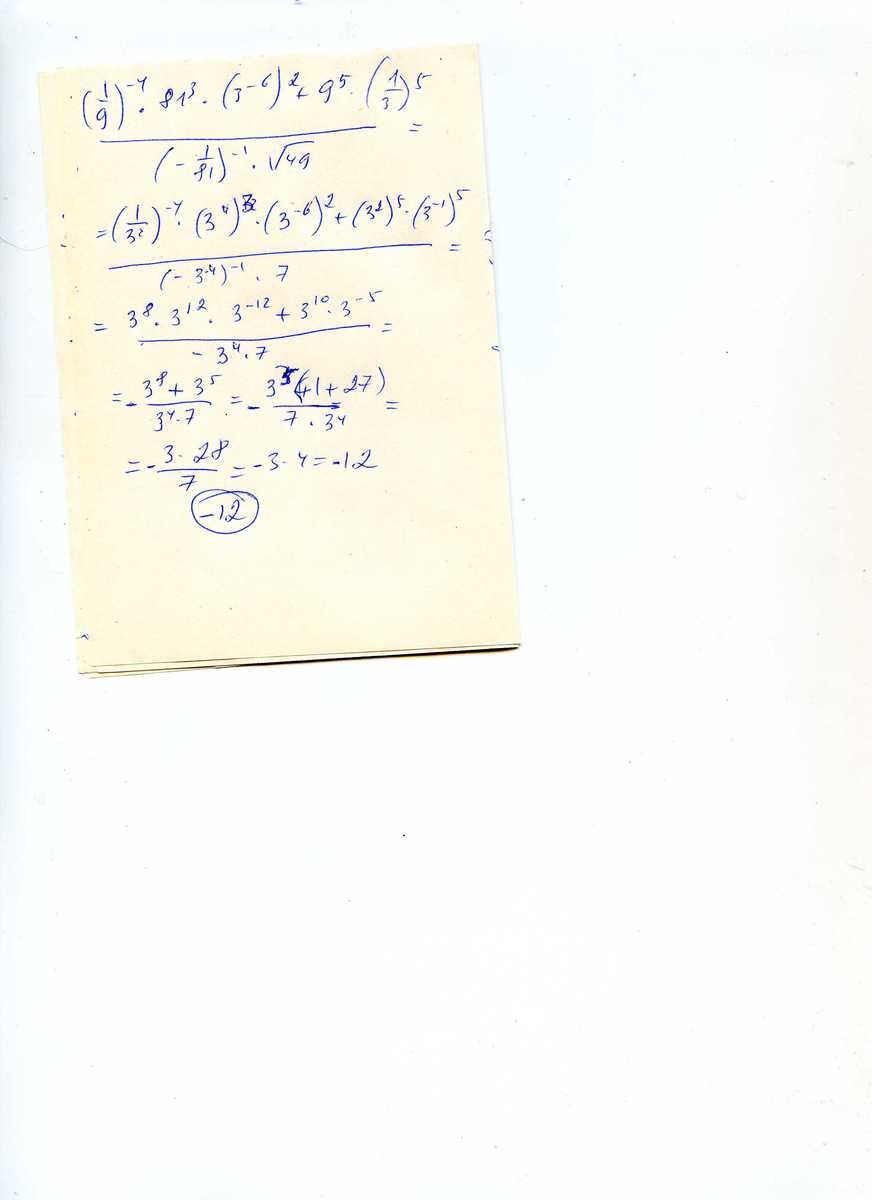 (1/9)^-4 · 81^3 · (3^-6)^2 + 9^5 · (1/3)^5
=
(-1/81)^-1 · √49
= (1/3^2)^-4 · (3^4)^3 · (3^-6)^2 + (3^2)^5 · (3^-1)^5
=
(-3^-4)^-1 · 7
= 3^8 · 3^12 · 3^-12 + 3^10 · 3^-5
=
-3^4 · 7
= - (3^8 + 3^5)/(3^4 · 7) = - 3^5(+1 + 27)/(7 · 3^4) =
= - (3 · 28)/7 = -3 · 4 = -12
-12